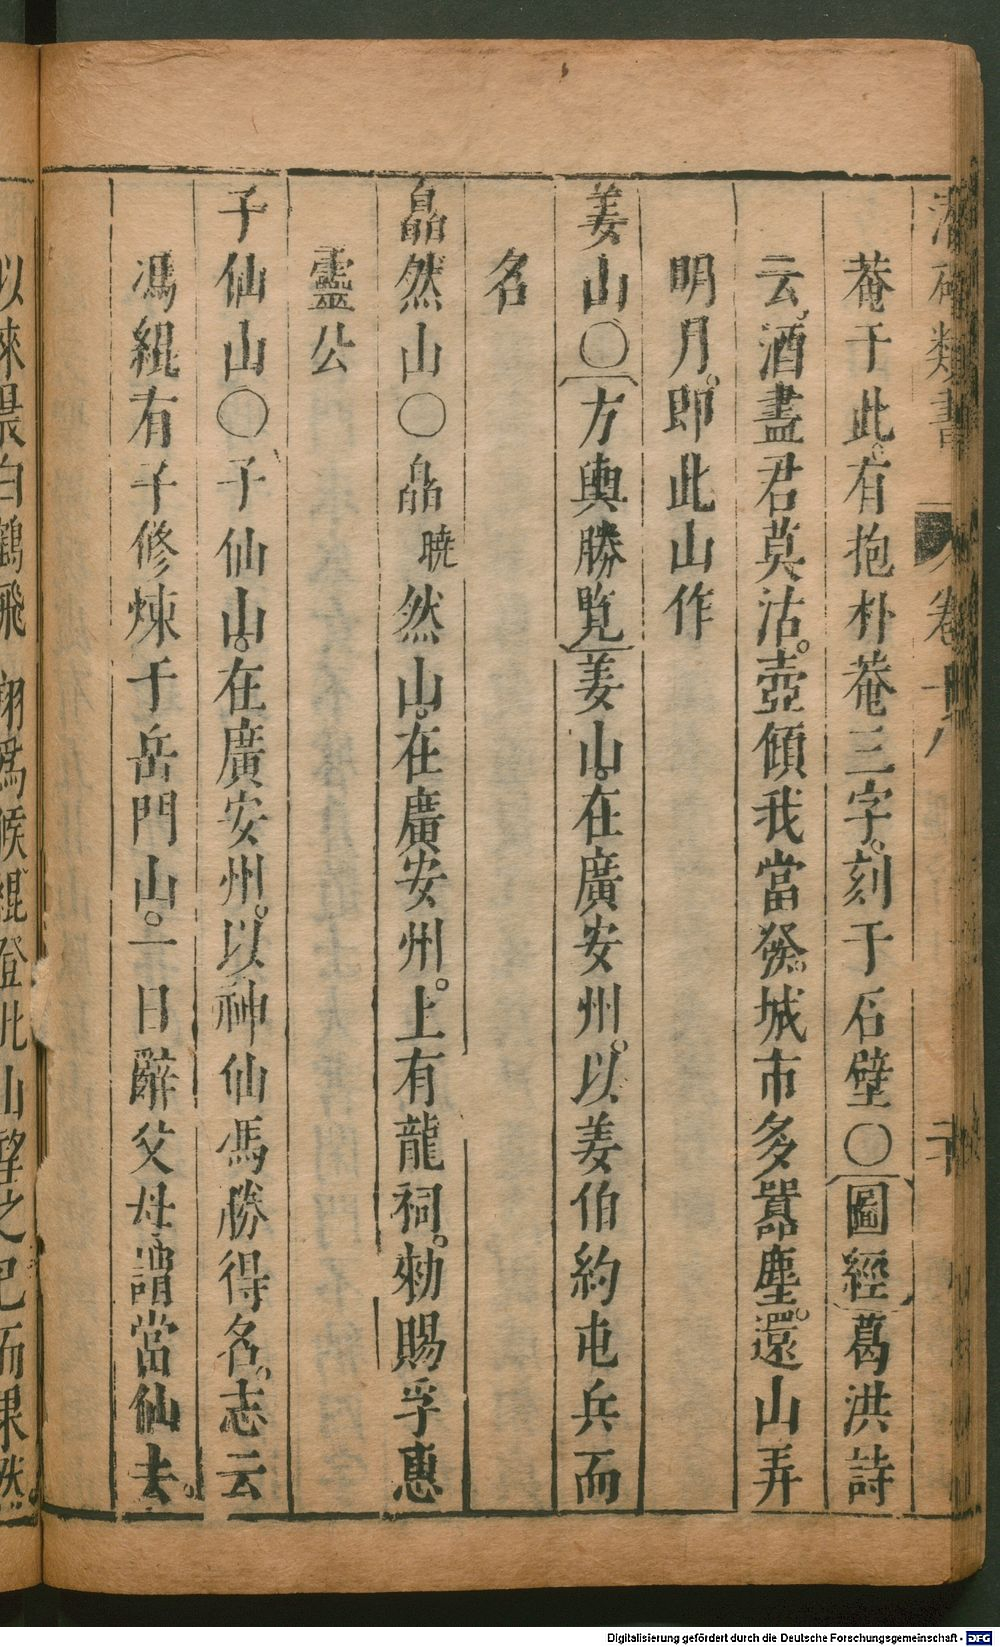 潛確類書 卷十八
菴于此。有抱朴菴三字。刻于石壁〇〔圖經〕葛洪詩
云。酒盡君莫沽。壺傾我當發。城市多囂塵。還山弄
明月。即此山作
姜山〇〔方輿勝覽〕姜山。在廣安州。以姜伯約屯兵而
名
皛然山〇皛曉然山。在廣安州。上有龍祠。勑賜孚惠
靈公
子仙山〇子仙山。在廣安州。以神仙馮勝得名。志云
馮緄有子修煉于岳門山。一日辭父母謂當仙去。
以來晨白鶴飛翔爲候。緄登此山望之已而果然。
Digitalisierung gefördert durch die Deutsche Forschungsgemeinschaft - DFG